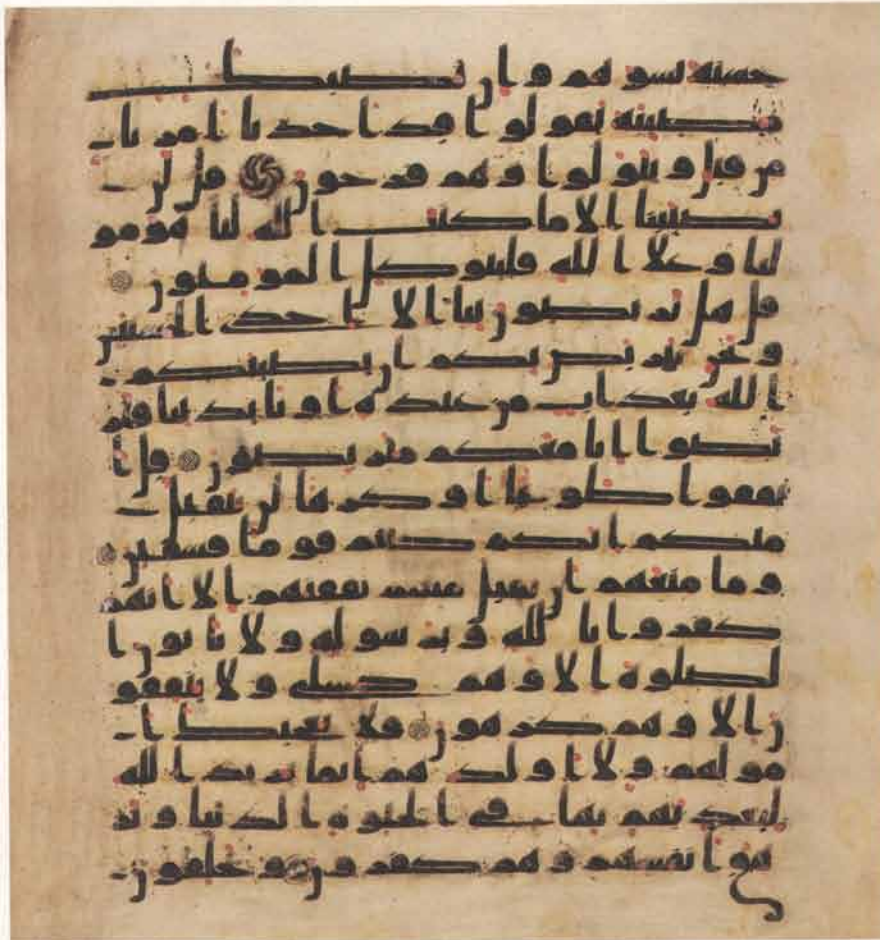 حسنه تسوهم وان تصبك
مصيبه يقولوا قد اخذنا امرنا
من قبل ويتولوا وهم فرحون قل لن
يصيبنا الا ما كتب الله لنا هو مو
لنا وعلا الله فليتوكل المومنون
قل هل تربصون بنا الا احدى الحسنيين
ونحن نتربص بكم ان يصيبكم
الله بعذاب من عنده او بايدينا فتر
بصوا انا معكم متربصون قل ا
نفقوا طوعا او كرها لن يتقبل
منكم انكم كنتم قوما فسقين
وما منعهم ان تقبل منهم نفقتهم الا انهم
كفروا بالله وبرسوله ولا ياتون ا
لصلوه الا وهم كسلى ولا ينفقو
ن الا وهم كرهون فلا تعجبك ا
مولهم ولا اولدهم انما يريد الله
ليعذبهم بها في الحيوه الدنيا وتز
هق انفسهم وهم كفرون ويحلفون